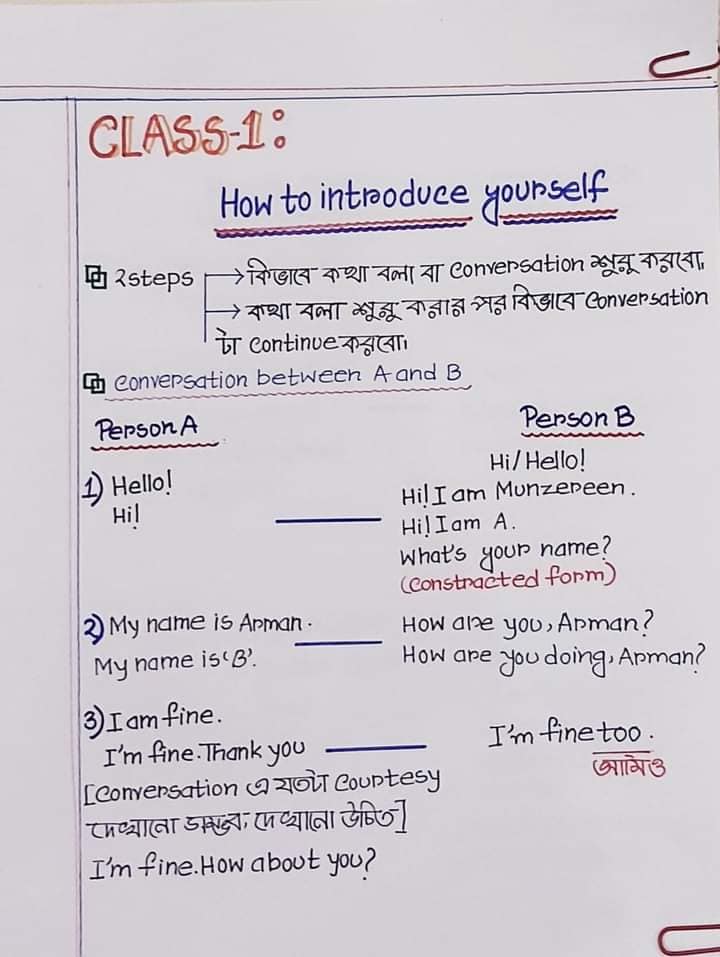 CLASS-1:
How to introduce yourself
2steps → কিভাবে কথা বলা বা conversation শুরু করবো,
→ কথা বলা শুরু করার পর কিভাবে conversation
টা continue করবো।
conversation between A and B
Person A
Person B
Hi/Hello!
1) Hello!
Hi! I am Munzereen.
Hi!
Hi! I am A.
What's your name?
(constracted form)
2) My name is Arman.
How are you, Arman?
My name is 'B'.
How are you doing, Arman?
3) I am fine.
I'm fine too.
I'm fine. Thank you
আমিও
[conversation এ যতটা courtesy
দেখানো সম্ভব, দেখানো উচিত]
I'm fine. How about you?